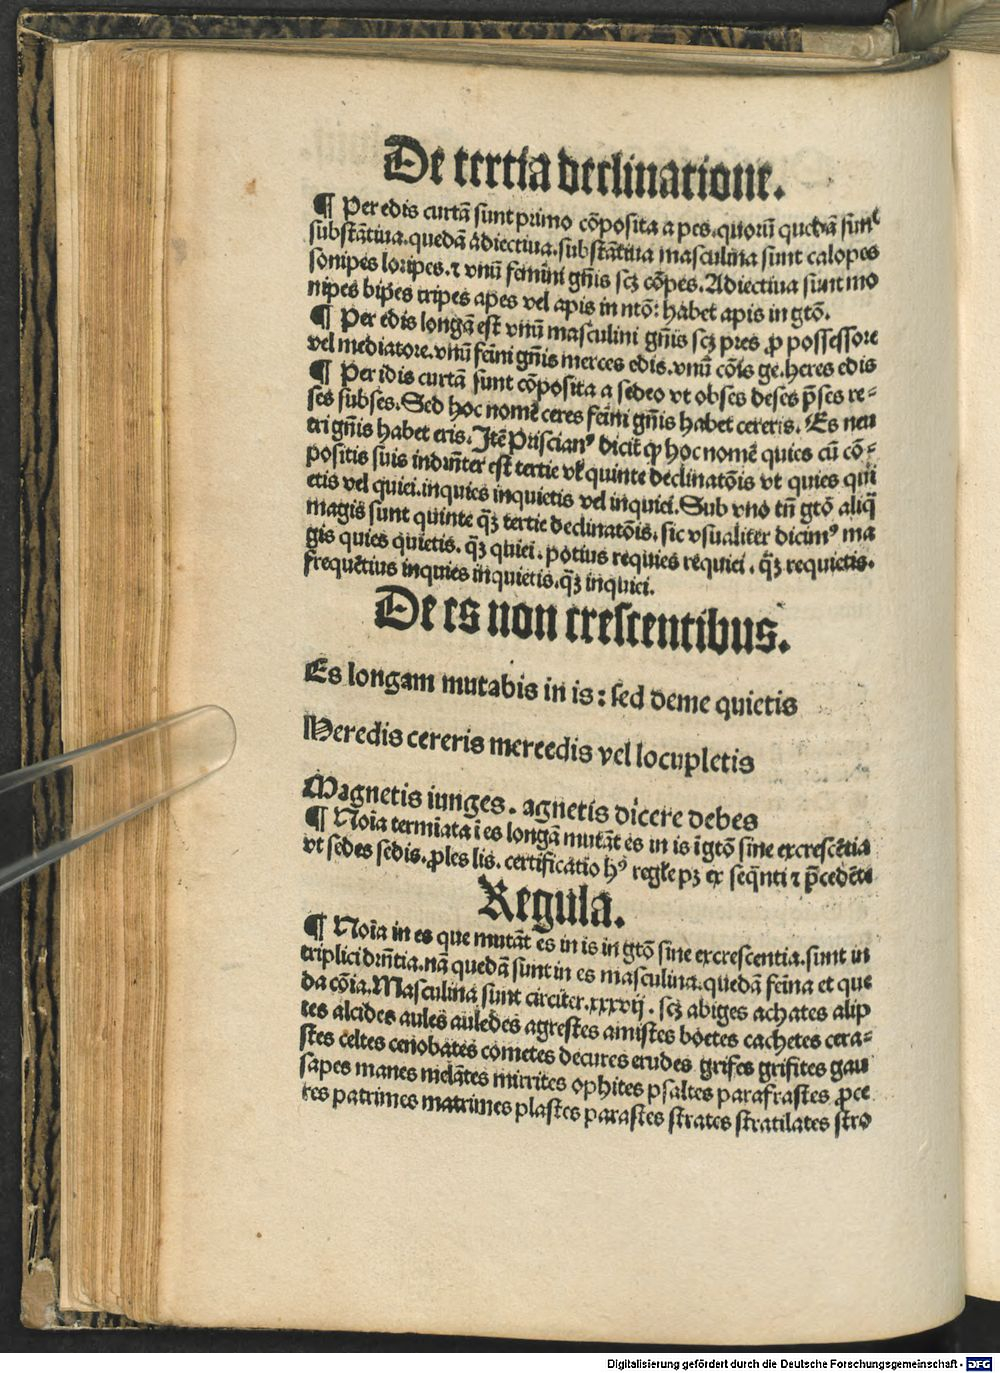 De tertia declinatione.
¶ Per edis curtā sunt primo cōposita a pes. quorū quedā sunt
substātiua. quedā adiectiua. substātiua masculina sunt calopes
sonipes loripes. ⁊ vnū femini gn̄is scꝫ cōpes. Adiectiua sunt mo
nipes bipes tripes apes vel apis in ntō: habet apis in gtō.
¶ Per edis longā est vnū masculini gn̄is scꝫ pres ꝓ possessore
vel mediatore. vnū femi̅ni gn̄is merces edis. vnū cōis ge. heres edis
¶ Per idis curtā sunt cōposita a sedeo vt obses deses p̄ses re-
ses subses. Sed hoc nomē ceres femi̅ni gn̄is habet cereris. Es neu
tri gn̄is habet eris. Itē Priscianꝰ dicit ꝙ hoc nomē quies cū cō-
positis suis indiffn̄ter est tertie vl̓ quinte declinatōis vt quies qui
etis vel quiei. inquies inquietis vel inquiei. Sub vno tn̄ gtō aliq̄
magis sunt quinte q̄ꝫ tertie declinatōis. sic vsualiter dicimꝰ ma
gis quies quietis. q̄ꝫ quiei. potius requies requiei. q̄ꝫ requietis.
frequētius inquies inquietis. q̄ꝫ inquiei.
De es non crescentibus.
Es longam mutabis in is: sed deme quietis
Heredis cereris mercedis vel locupletis
Magnetis iunges. agnetis dicere debes
¶ Noīa termīata ī es longā mutāt es in is ī gtō sine excrescētia
vt sedes sedis. ꝓles lis. certificatio hꝰ regl̓e pꝫ ex seq̄nti ⁊ p̄cedēti
Regula.
¶ Noīa in es que mutāt es in is in gtō sine excrescentia. sunt in
triplici dn̄ia. nā quedā sunt in es masculina. quedā femi̅na et que
dā cōia. Masculina sunt circiter .xxxvij. scꝫ abiges achates alip
tes alcides aules auledes agrestes amistes boetes cachetes cera-
stes celtes cenobates cometes decures erudes grifes grifites gau
sapes manes melātes mirrites ophites psaltes parafrastes ꝓce
res patrimes matrimes plastes parastes strates stratilates stro
Digitalisierung gefördert durch die Deutsche Forschungsgemeinschaft - DFG